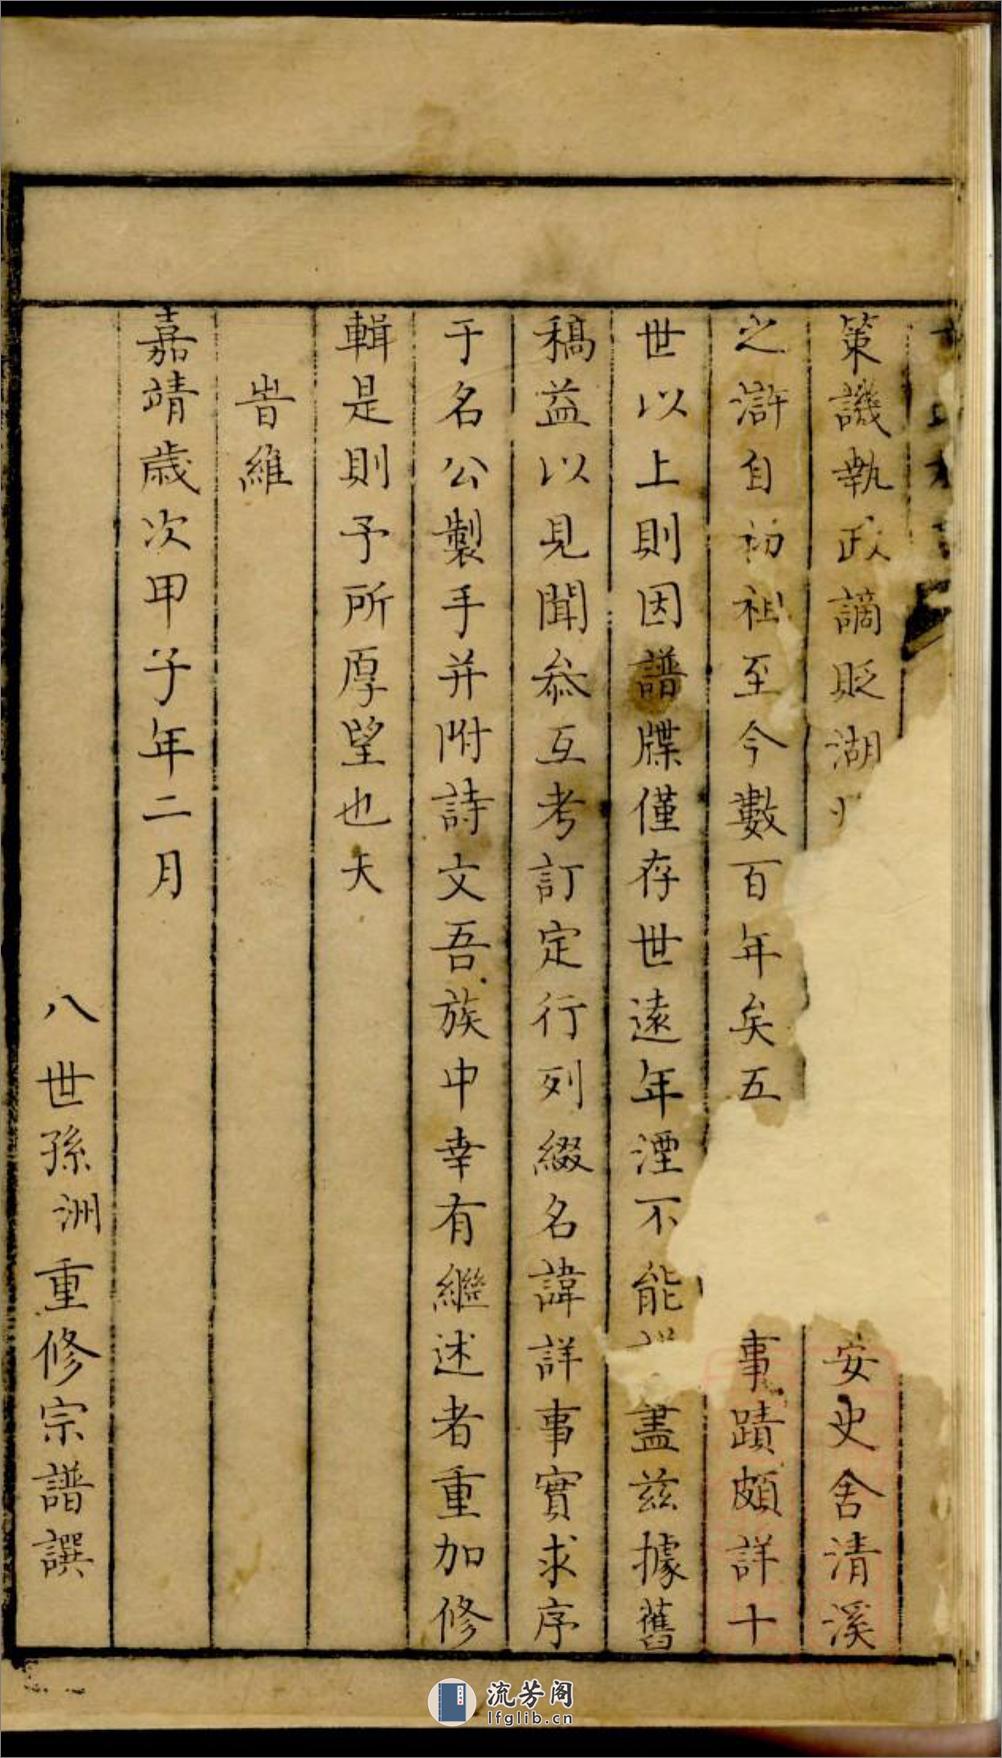 策譏執政謫貶湖 安史舍清溪
之滸自初祖至今數百年矣五 事蹟頗詳十
世以上則因譜牒僅存世遠年湮不能 盡茲據舊
稿益以見聞叅互考訂定行列綴名諱詳事實求序
于名公製手并附詩文吾族中幸有繼述者重加修
輯是則予所厚望也夫
旹維
嘉靖歲次甲子年二月
八世孫洲重修宗譜譔
流芳阁
lfglib.cn